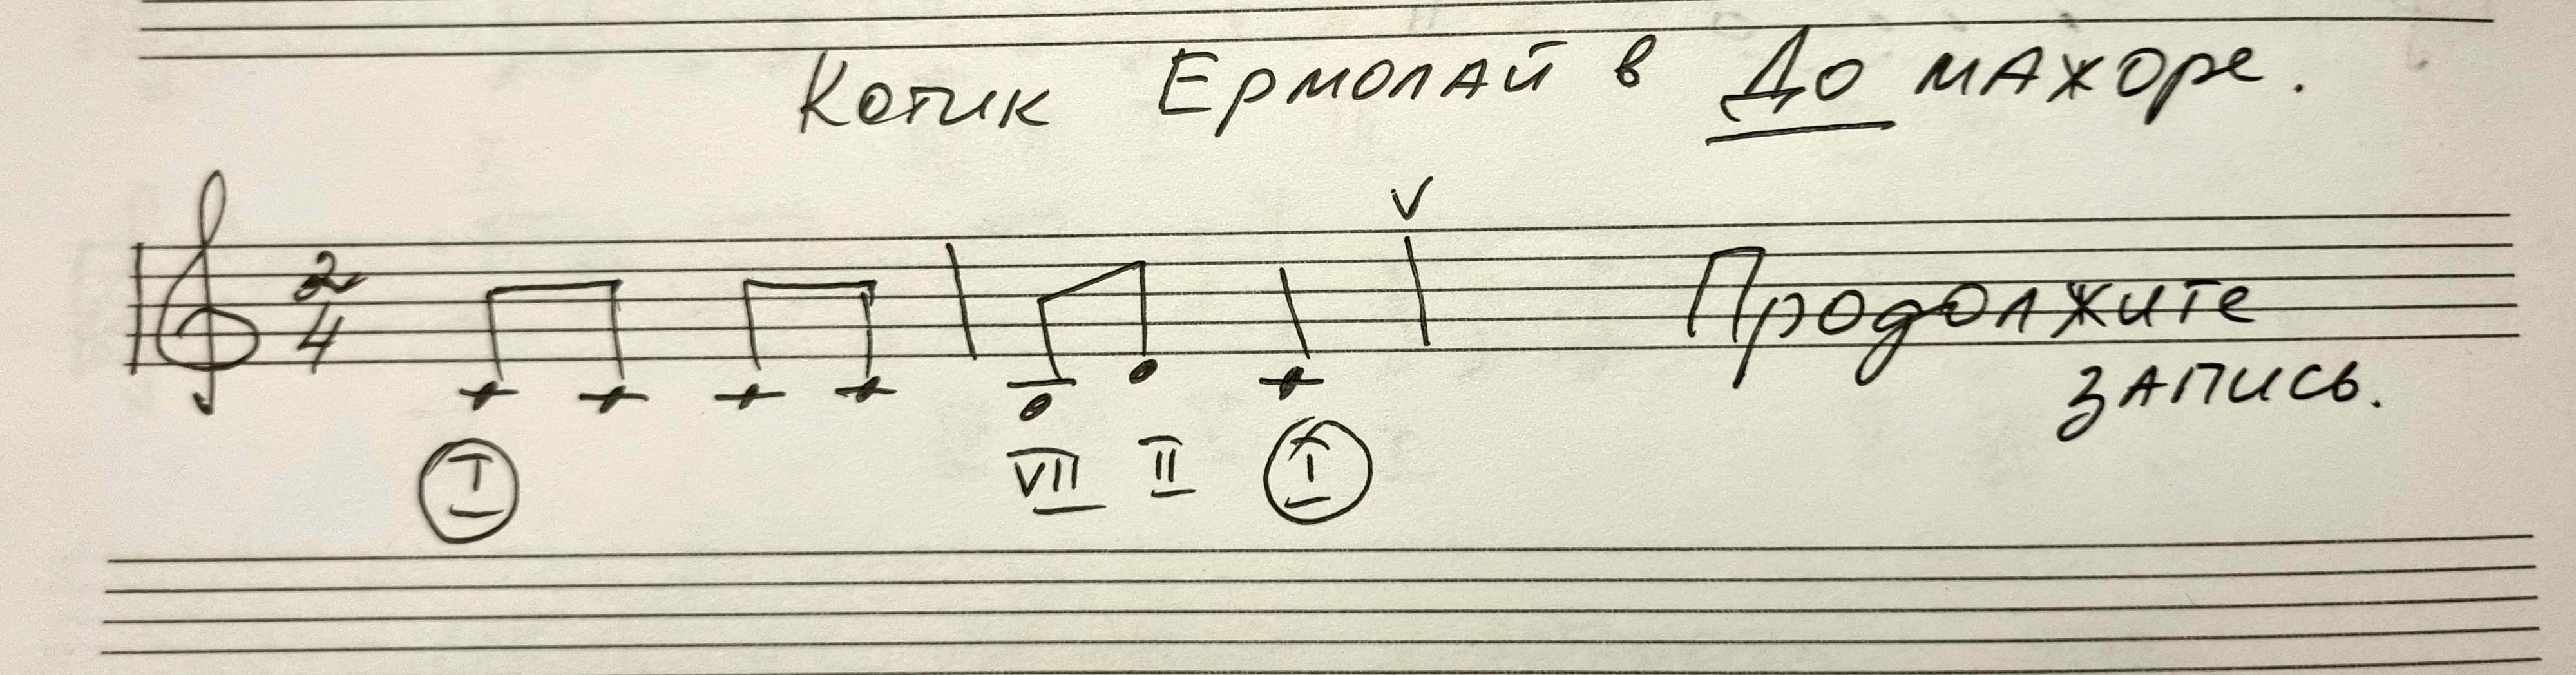 Котик Ермолай в До мажоре.
2
4
V
Продолжите
запись.
I VII II I